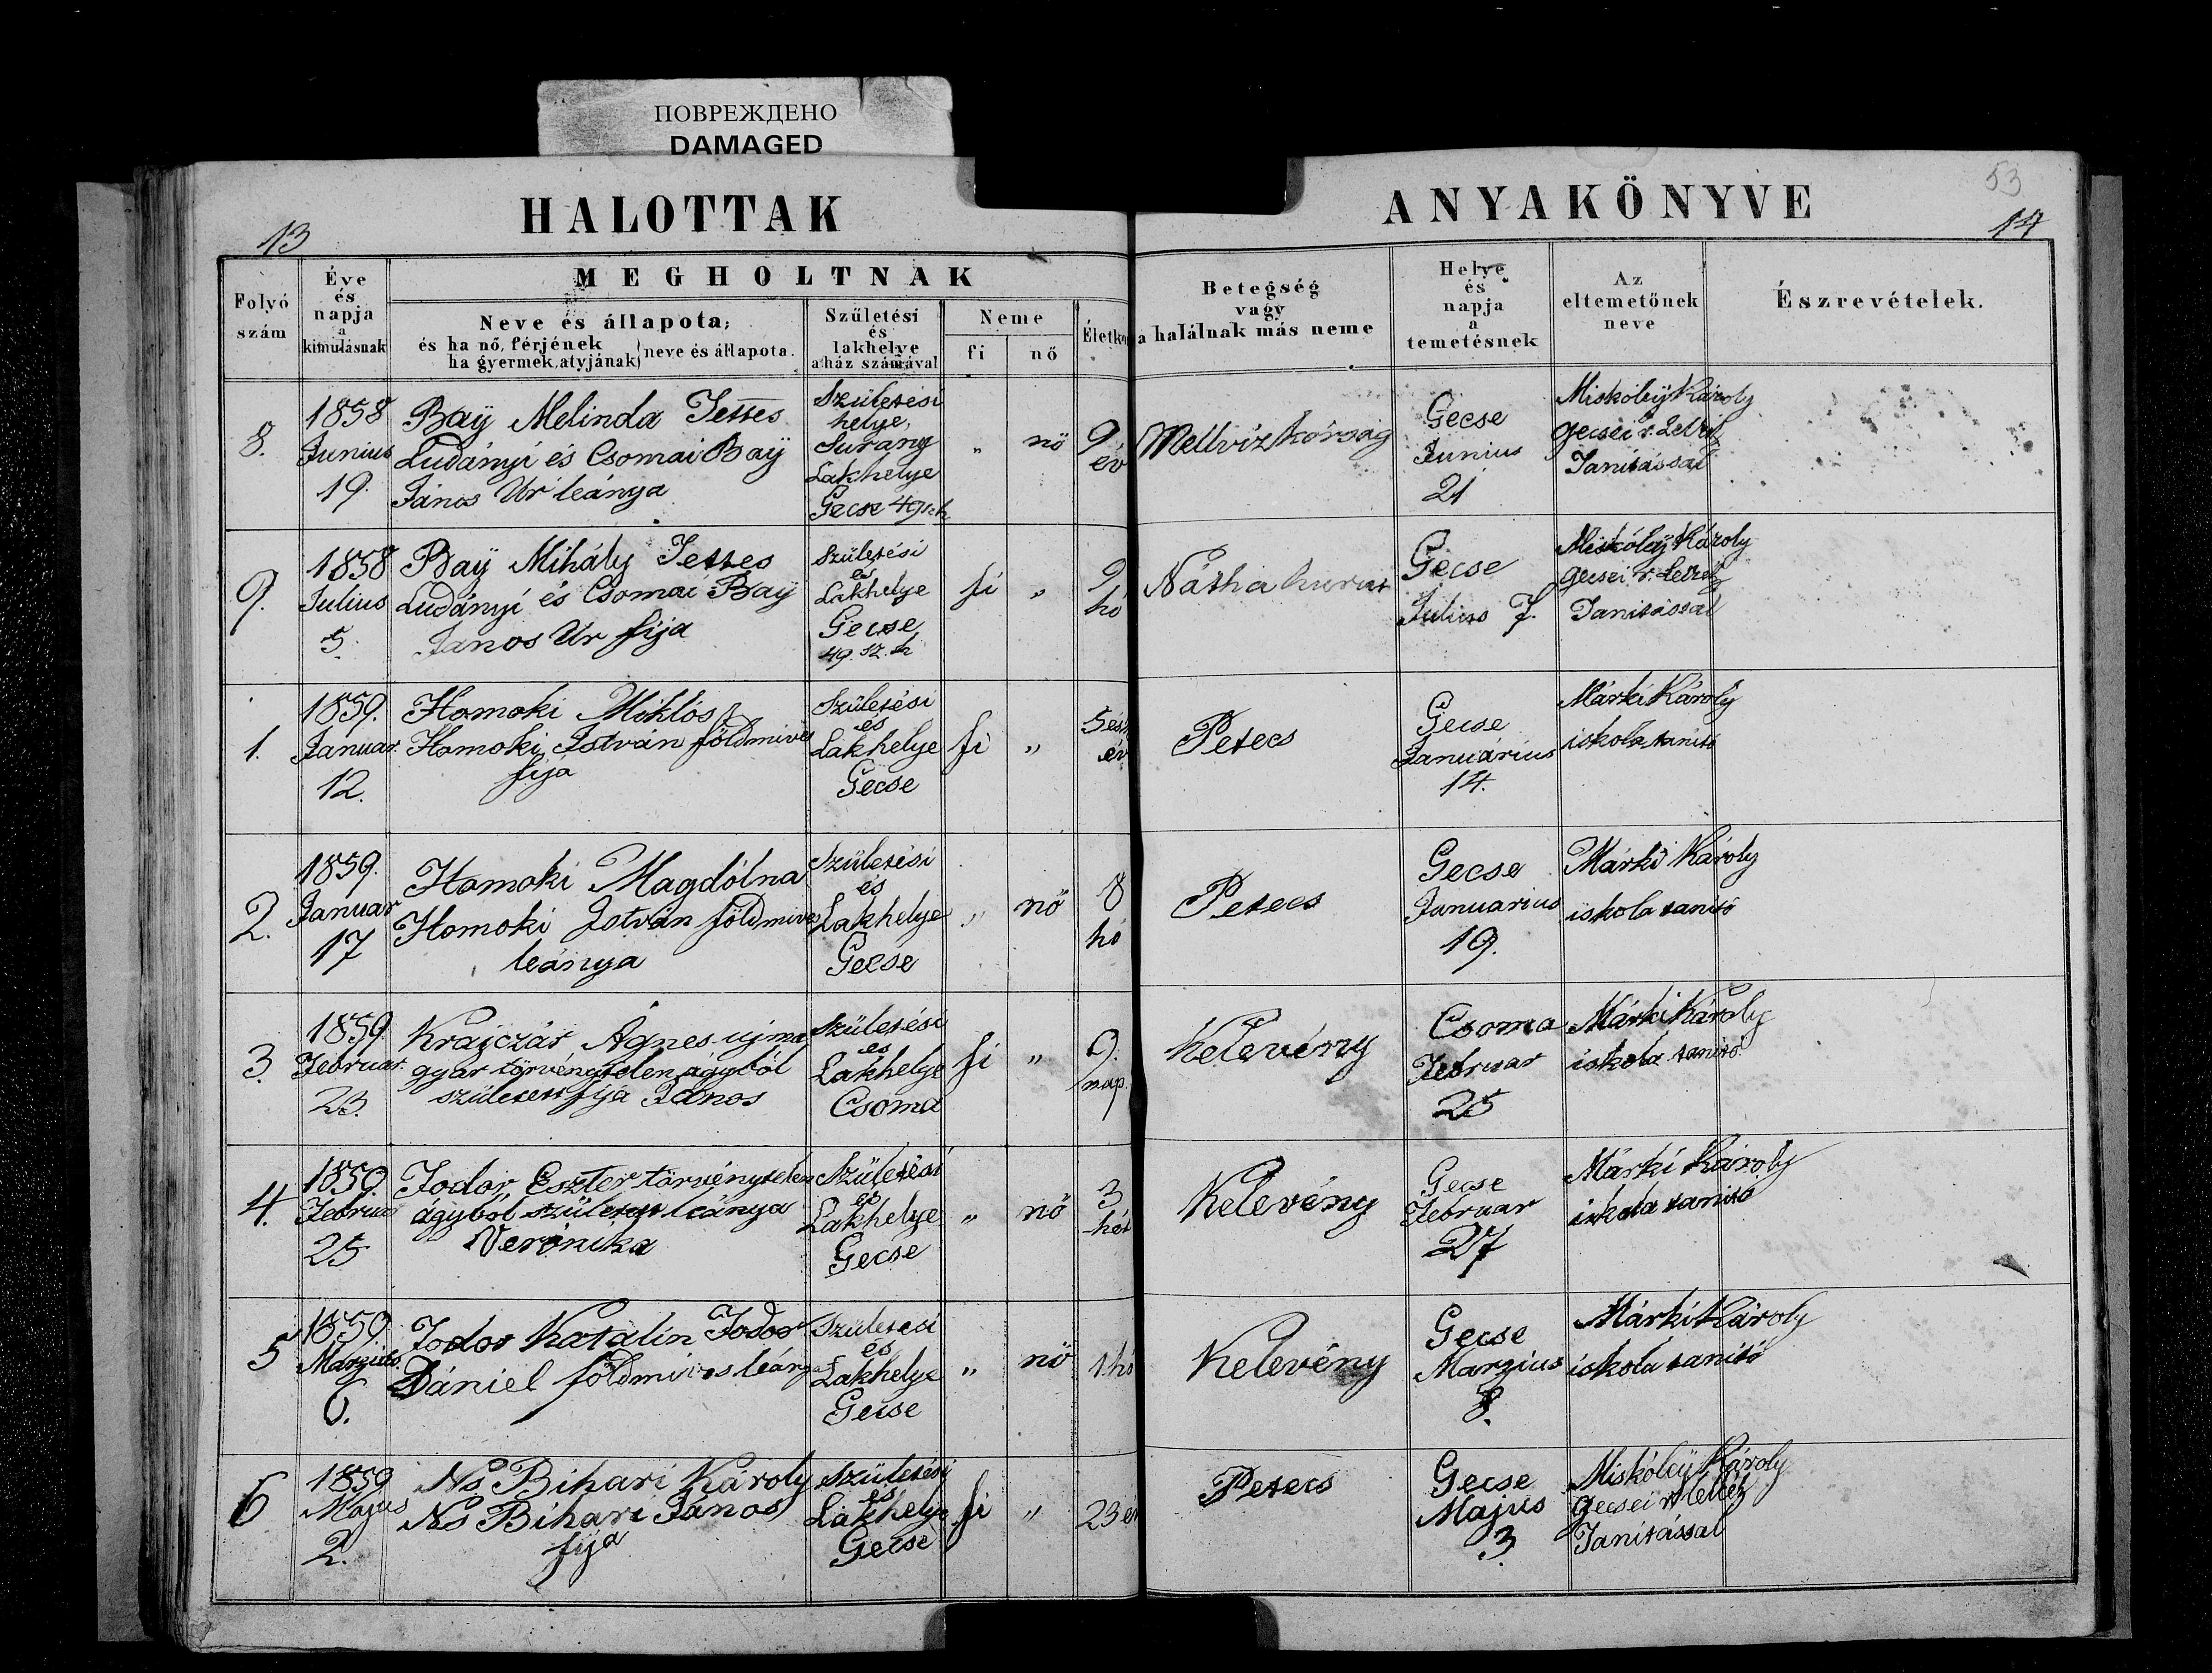 ПОВРЕЖДЕНО
DAMAGED
HALOTTAK
ANYAKÖNYVE
53
13
14
Folyó
szám
Éve
és
napja
a
kimulásnak
MEGHOLTNAK
Neve és állapota,
és ha nő, férjének
ha gyermek, atyjának
neve és állapota.
Születési
és
lakhelye
a ház számával
Neme
fi
nő
Életko
Betegség
vagy
a halálnak más neme
Helye
és
napja
a
temetésnek
Az
eltemetőnek
neve
Észrevételek.
8.
1858
Junius
19.
Baÿ Melinda Tettes
Ludányi és Csomai Baÿ
János Ur leánya
Születési
helye,
Surány
Lakhelye
Gecse 49 sz. h
„
nő
9
év
Mellvizkórság
Gecse
Junius
21
Miskólcÿ Károly
gecsei r. Lelkész
Tanitással
9.
1858
Julius
5.
Baÿ Mihály Tettes
Ludányi és Csomai Baÿ
Janos Ur fija
Születési
és
Lakhelye
Gecse
49. sz. h
fi
„
9
hó
Nátha hurut
Gecse
Julius 7.
Miskólcÿ Károly
gecsei r. Lelkész
Tanitással
1.
1859.
Januar.
12.
Homoki Miklós
Homoki István földmives
fijá
Születési
és
Lakhelye
Gecse
fi
„
5 és
év
Petecs
Gecse
Januárius
14.
Márki Károly
iskola tanitó
2.
1859.
Januar
17
Homoki Magdólna
Homoki István földmives
leánya
Születési
és
Lakhelye
Gecse
„
nő
8
hó
Petecs
Gecse
Januarius
19.
Márki Károly
iskola tanitó
3.
1859
Februar.
23.
Krajczár Ágnes ujma
gyar törvénytelen ágyból
született fija János
Születési
és
Lakhelye
Csoma
fi
„
9.
nap.
Kelevény
Csoma
Februar
25
Márki Károly
iskola tanitó
4.
1859.
Februar
25
Fodor Eszter törvénytelen
ágyból született leánya
Veronika
Születési
és
Lakhelye
Gecse
„
nő
3
hét
Kelevény
Gecse
Februar
27
Márki Károly
iskola tanitó
5
1859.
Marzius.
6.
Fodor Katalin Fodor
Dániel földmives leánya
Születesi
és
Lakhelye
Gecse
„
nő
1 hó
Kelevény
Gecse
Marzius
8.
Márki Károly
iskola tanitó
6
1859
Majus
2.
Ns Bihari Károly
Ns Bihari János
fija
Születési
és
Lakhelye
Gecse
fi
„
23 év
Petecs
Gecse
Majus
3.
Miskólcÿ Károly
gecsei r. lelkész
Tanitással